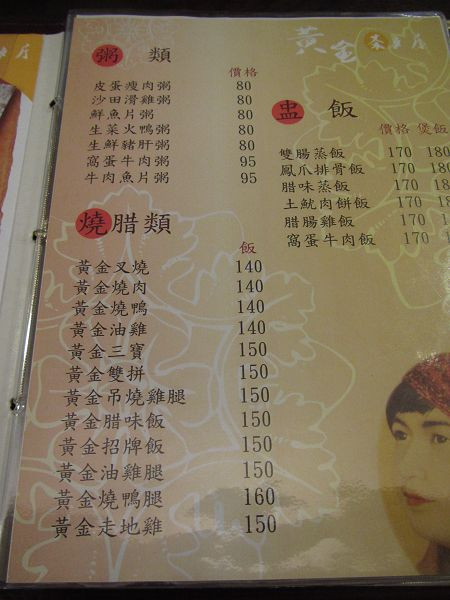 黃金茶餐廳
粥 類
價格
皮蛋瘦肉粥 80
沙田滑雞粥 80
鮮魚片粥 80
生菜火鴨粥 80
生鮮豬肝粥 80
窩蛋牛肉粥 95
牛肉魚片粥 95
盅 飯
價格 煲飯
雙腸蒸飯 170 180
鳳爪排骨飯 170 180
腊味蒸飯 170 180
土魷肉餅飯 170 180
腊腸雞飯 170 180
窩蛋牛肉飯 170
燒腊類
飯
黃金叉燒 140
黃金燒肉 140
黃金燒鴨 140
黃金油雞 140
黃金三寶 150
黃金雙拼 150
黃金吊燒雞腿 150
黃金腊味飯 150
黃金招牌飯 150
黃金油雞腿 150
黃金燒鴨腿 160
黃金走地雞 150